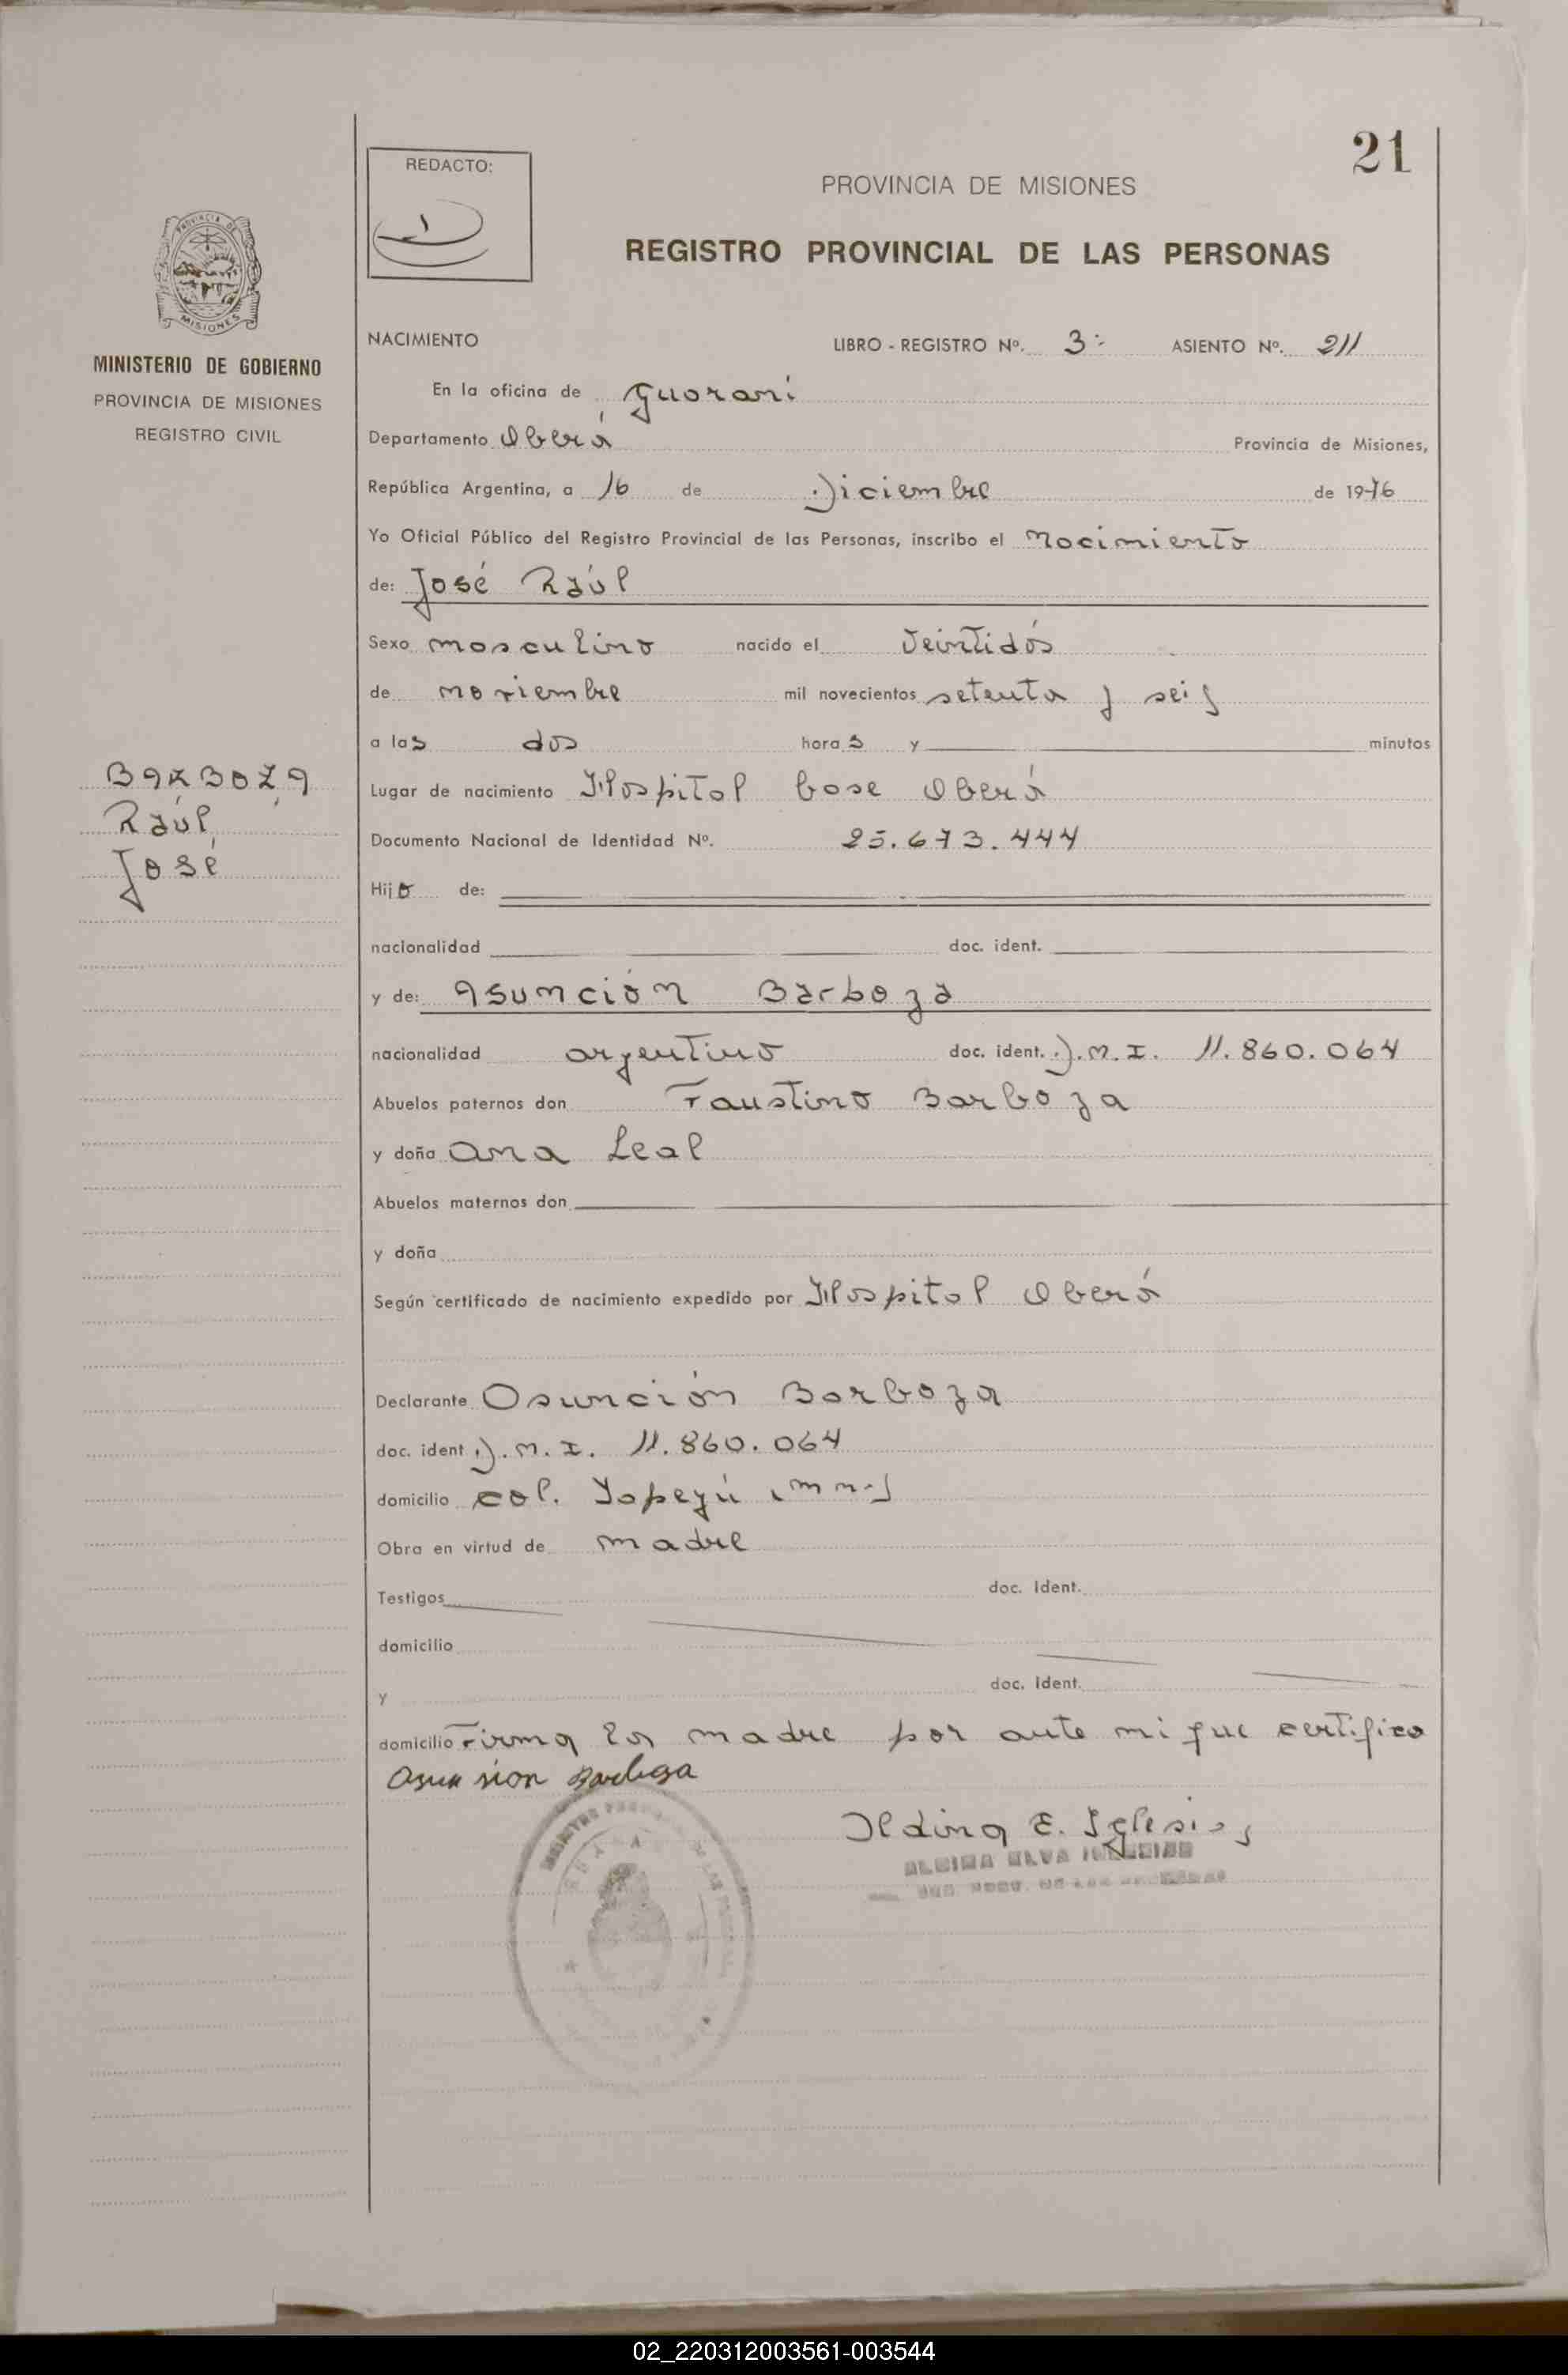 21
REDACTO:
PROVINCIA DE MISIONES
REGISTRO PROVINCIAL DE LAS PERSONAS
PROVINCIA DE
MISIONES
MINISTERIO DE GOBIERNO
PROVINCIA DE MISIONES
REGISTRO CIVIL
BARBOZA
Raúl
José
NACIMIENTO LIBRO - REGISTRO Nº. 3º ASIENTO Nº. 211
En la oficina de Guaraní
Departamento Oberá Provincia de Misiones,
República Argentina, a 16 de Diciembre de 1976
Yo Oficial Público del Registro Provincial de las Personas, inscribo el Nacimiento
de: José Raúl
Sexo masculino nacido el Veintidós
de noviembre mil novecientos setenta y seis
a las dos horas y minutos
Lugar de nacimiento Hospital base Oberá
Documento Nacional de Identidad Nº. 25.673.444
Hijo de:
nacionalidad doc. ident.
y de: Asunción Barboza
nacionalidad argentino doc. ident. D.N.I. 11.860.064
Abuelos paternos don Faustino Barboza
y doña Ana Leal
Abuelos maternos don
y doña
Según certificado de nacimiento expedido por Hospital Oberá
Declarante Asunción Barboza
doc. ident D.N.I. 11.860.064
domicilio col. Yapeyú (mns)
Obra en virtud de madre
Testigos doc. Ident.
domicilio
y doc. Ident.
domicilio Firma la madre por ante mi que certifico
Asunsion Barboza
Iglesias
02_220312003561-003544